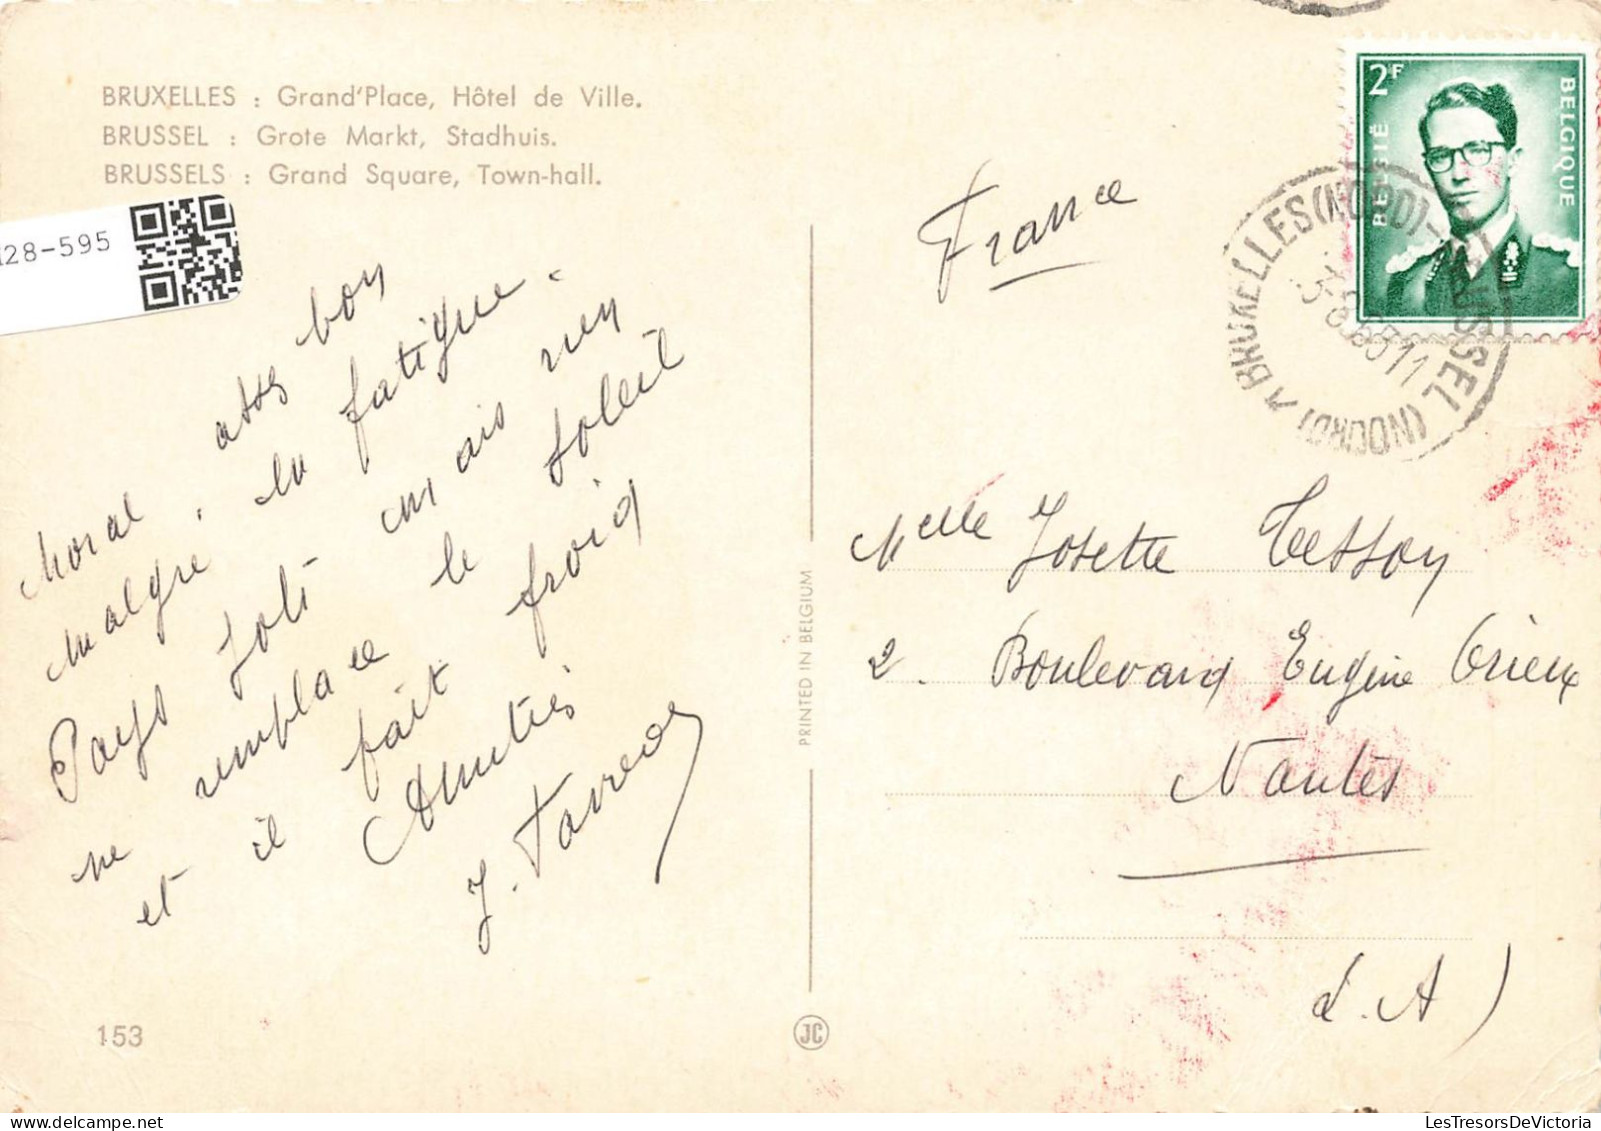 BRUXELLES : Grand'Place, Hôtel de Ville.
BRUSSEL : Grote Markt, Stadhuis.
BRUSSELS : Grand Square, Town-hall.
28-595
Moral assez bon
malgré la fatigue.
Pays joli mais rien
ne remplace le soleil
et il fait froid
Amitiés
153
PRINTED IN BELGIUM
JC
France
2F
BELGIË
BELGIQUE
BRUXELLES (NORD) BRUSSEL (NOORD)
Melle Josette Tesson
2. Boulevard Eugène Orieux
Nantes
L.A)
LesTresorsDeVictoria